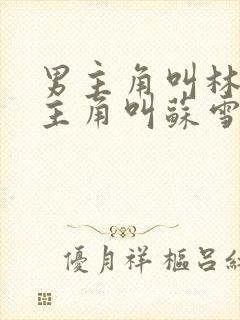 男主角叫林
主角叫蘇雪
優月祥樞呂